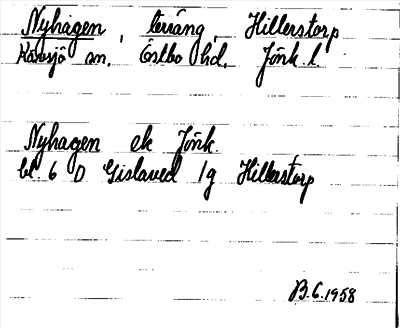 Nyhagen, terräng, Hillerstorp
Kävsjö sn. Östbo hd. Jönk. l.
Nyhagen ek Jönk.
bl 6 D Gislaved lg Hillerstorp
B.G. 1958